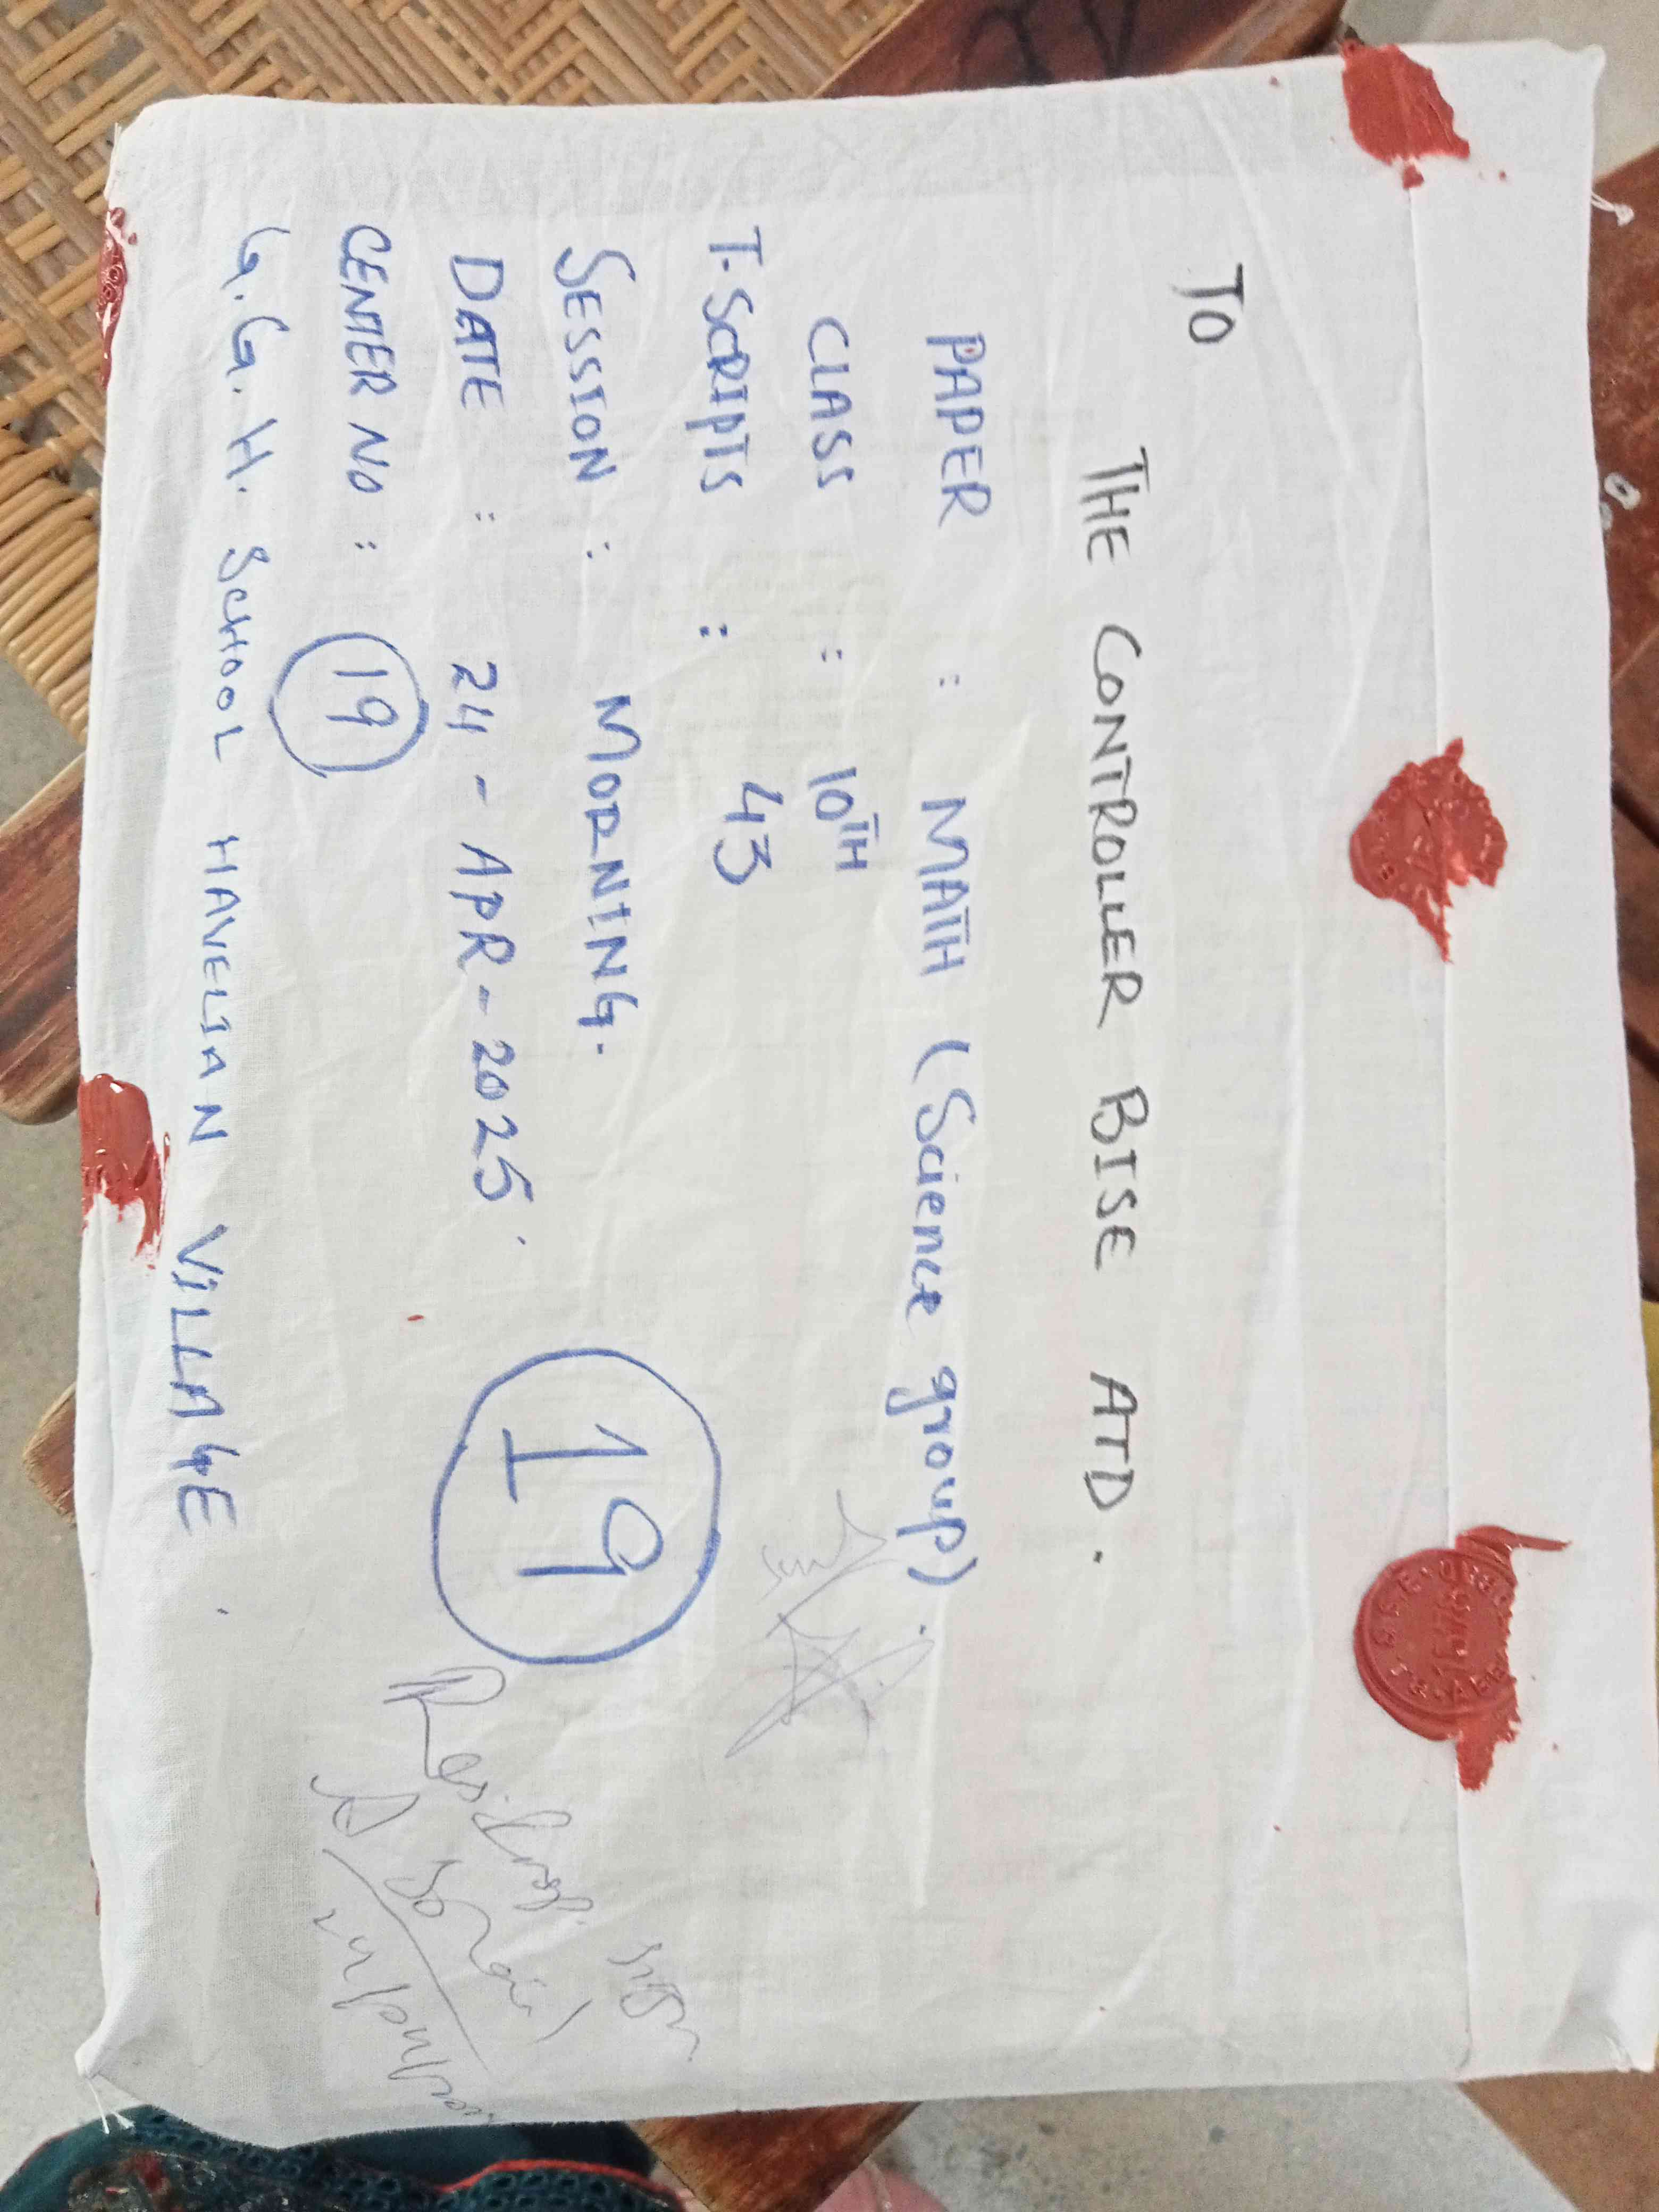 TO
THE CONTROLLER BISE ATD.
PAPER : MATH (Science group).
CLASS : 10TH
T. SCRIPTS : 43
SESSION : MORNING.
DATE : 24 - APR - 2025.
CENTER NO : 19
19
G.G.H. SCHOOL HAVELIAN VILLAGE.